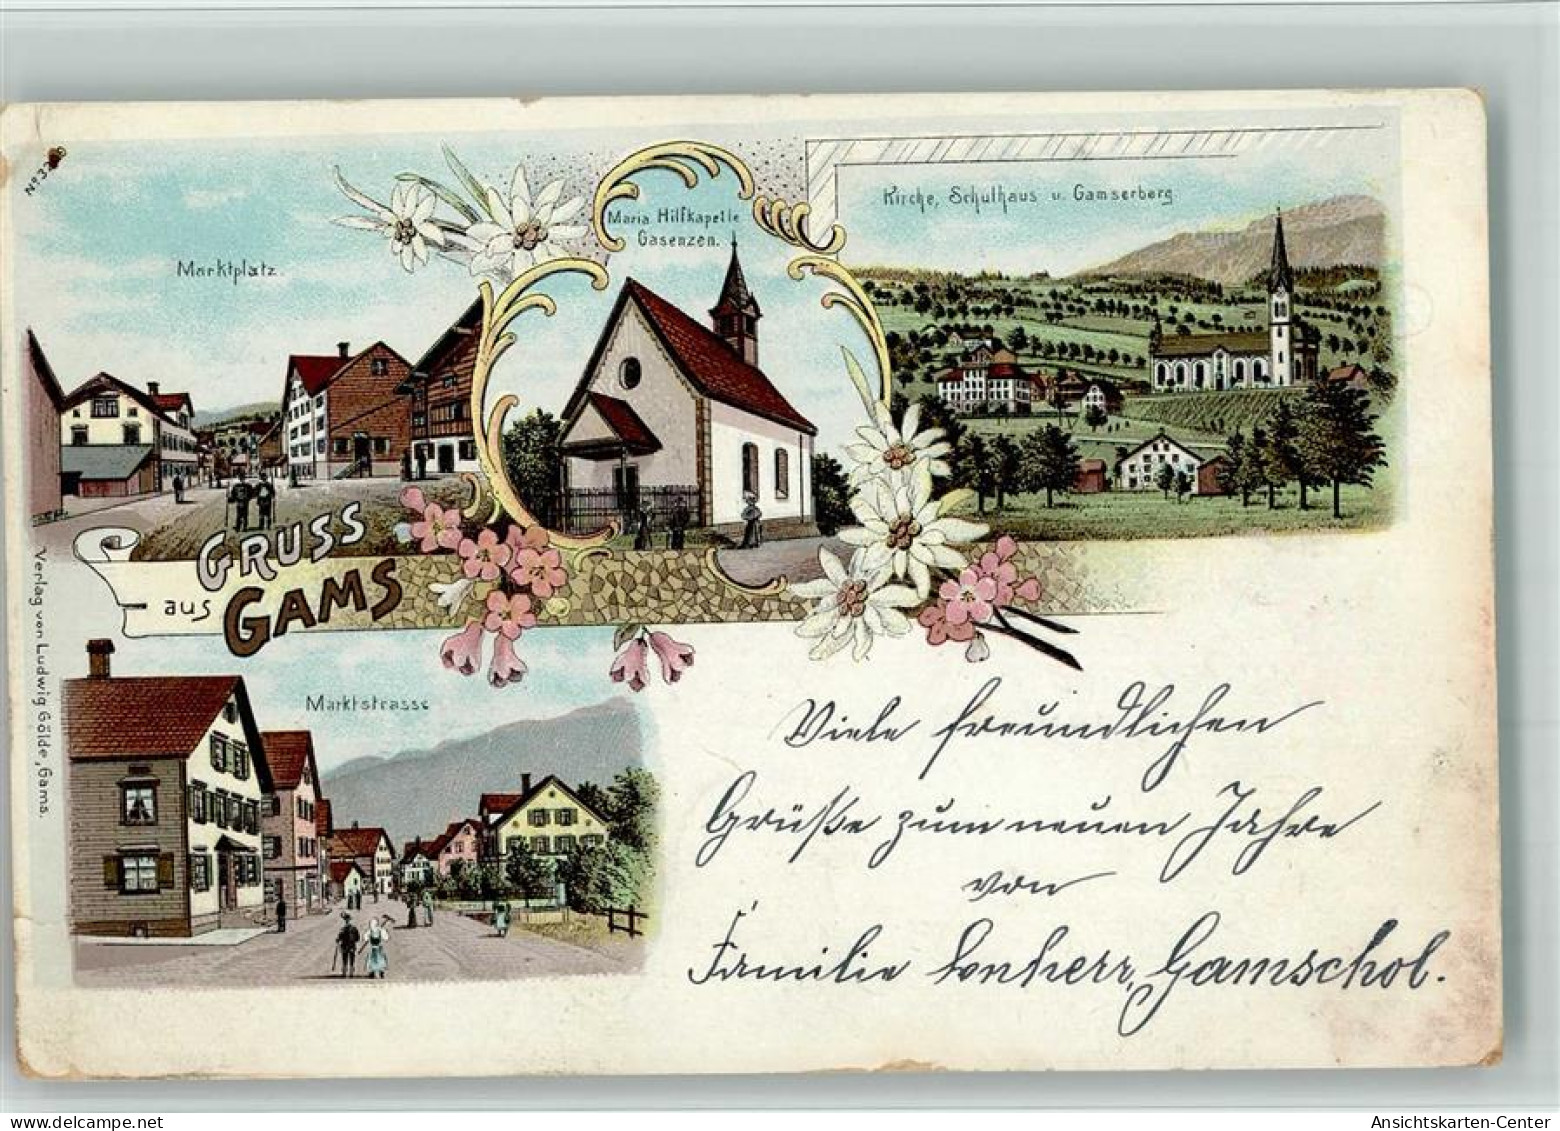 No 3
Marktplatz.
Maria Hilfkapelle
Gasenzen.
Kirche, Schulhaus u. Gamserberg.
GRUSS
aus GAMS
Verlag von Ludwig Gölde, Gams.
Marktstrasse
Viele freundlichen
Grüße zum neuen Jahre
von
Familie Lenherr, Gamschol.
delcampe.net
Ansichtskarten-Center